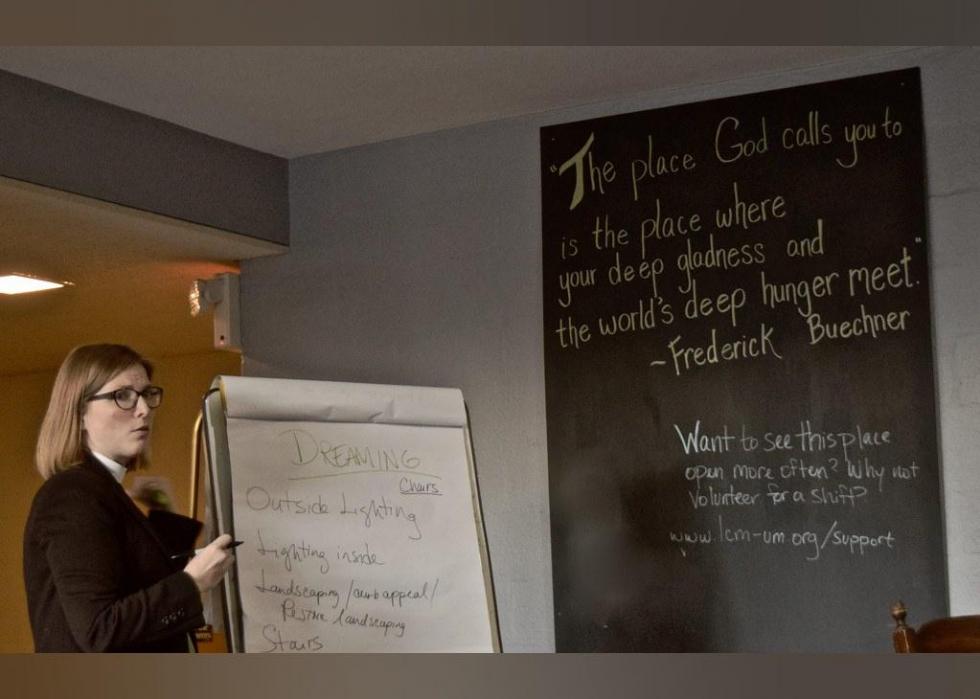 DREAMING
Chairs
Outside Lighting
Lighting inside
Landscaping /curb appeal/
Pristine landscaping
Stairs
"The place God calls you to
is the place where
your deep gladness and
the world's deep hunger meet."
~Frederick Buechner
Want to see this place
open more often? Why not
Volunteer for a shift?
www.lcm-um.org/support